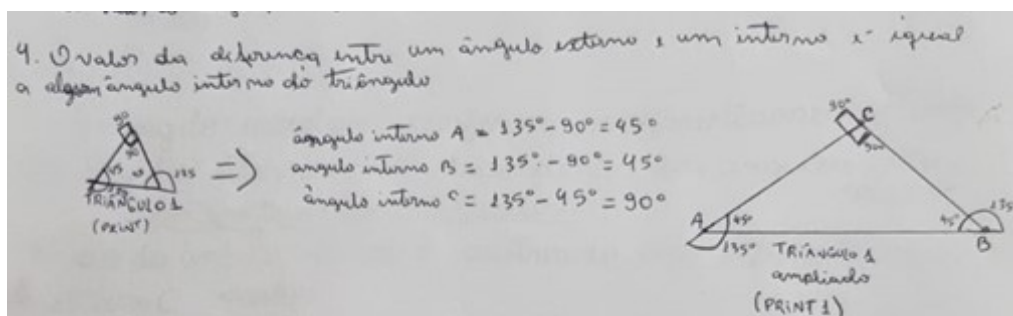 4. O valor da diferença entre um ângulo externo e um interno é igual
a algum ângulo interno do triângulo
90°
45
135
TRIÂNGULO 1
(PRINT)
=>
ângulo interno A = 135° - 90° = 45°
angulo interno B = 135° - 90° = 45°
ângulo interno C = 135° - 45° = 90°
90°
C
90°
A
45°
135°
45°
135
B
TRIÂNGULO 1
ampliado
(PRINT 1)